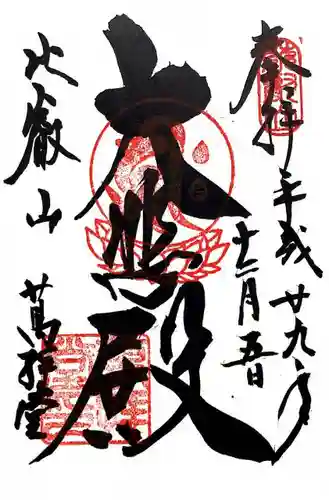 奉拝 平成廿九年
十二月五日
大悲殿
比叡山 萬拝堂